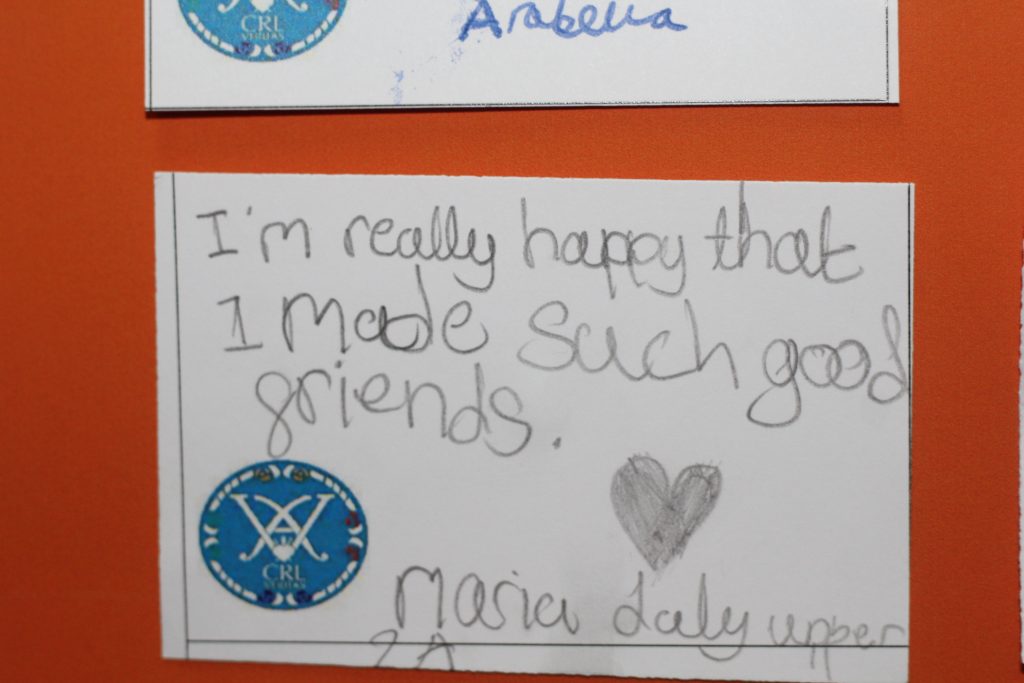 CRL
VERITAS
Arabella
I'm really happy that
I made such good
friends.
CRL
VERITAS
Maria daly upper
2A